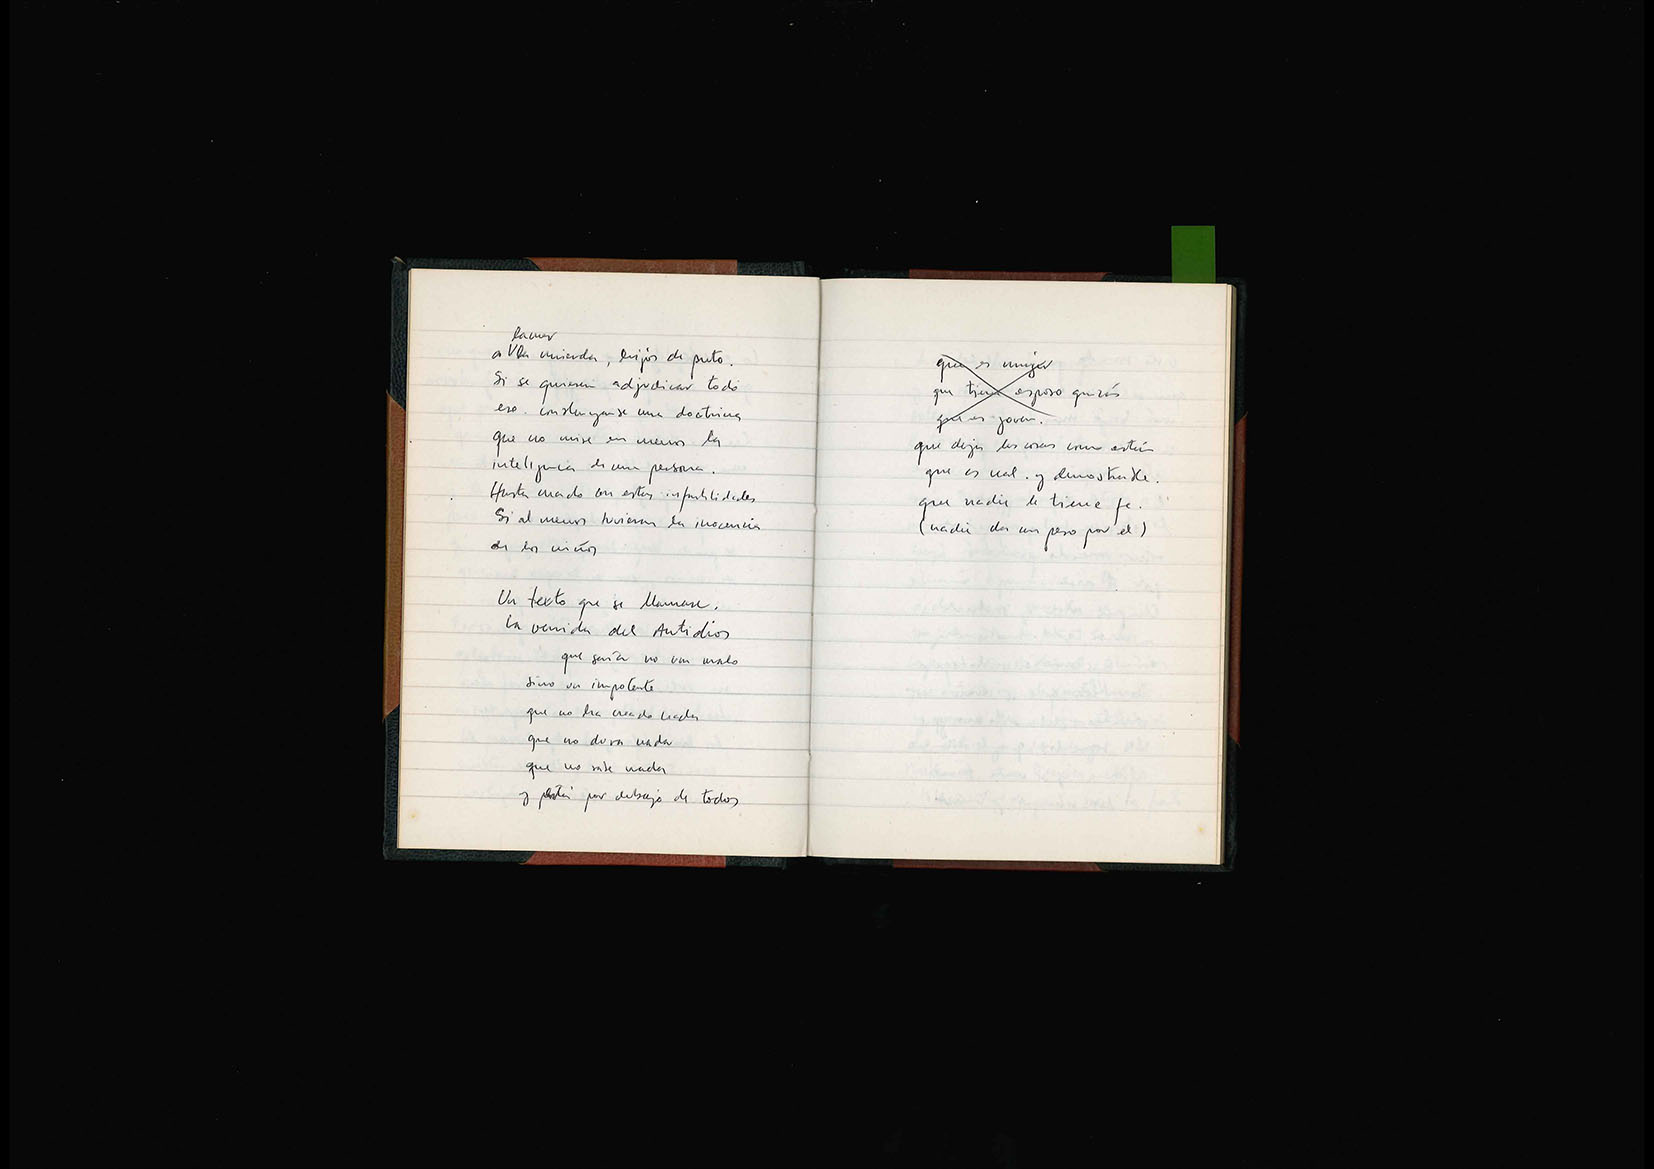 lamer
a la mierda, hijos de puto.
Si se quieren adjudicar todo
eso. constrúyanse una doctrina
que no mire en menos la
inteligencia de una persona.
Hasta cuando con estas infantilidades
Si al menos tuvieran la inocencia
de los niños
Un texto que se llamase.
La venida del Antidios
que sería no un malo
sino un impotente
que no ha creado nada
que no dura nada
que no sabe nada
y está por debajo de todos
que es mujer
que tiene esposo quizás
que es joven.
que deja las cosas como están
que es real. y demostrable.
que nadie le tiene fe.
(nadie da un peso por él)